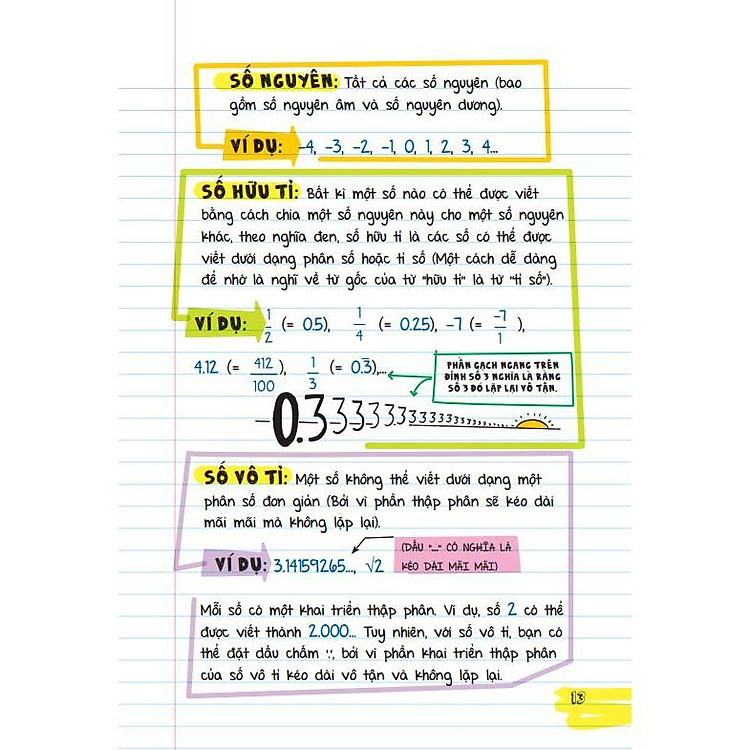 SỐ NGUYÊN: Tất cả các số nguyên (bao
gồm số nguyên âm và số nguyên dương).
VÍ DỤ: -4, -3, -2, -1, 0, 1, 2, 3, 4...
SỐ HỮU TỈ: Bất kì một số nào có thể được viết
bằng cách chia một số nguyên này cho một số nguyên
khác, theo nghĩa đen, số hữu tỉ là các số có thể được
viết dưới dạng phân số hoặc tỉ số (Một cách dễ dàng
để nhớ là nghĩ về từ gốc của từ "hữu tỉ" là từ "tỉ số").
VÍ DỤ: 1/2 (= 0.5), 1/4 (= 0.25), -7 (= -7/1),
4.12 (= 412/100), 1/3 (= 0.3̅),...
PHẦN GẠCH NGANG TRÊN
ĐỈNH SỐ 3 NGHĨA LÀ RẰNG
SỐ 3 ĐÓ LẶP LẠI VÔ TẬN.
0.33333333333333333333...
SỐ VÔ TỈ: Một số không thể viết dưới dạng một
phân số đơn giản (Bởi vì phần thập phân sẽ kéo dài
mãi mãi mà không lặp lại).
VÍ DỤ: 3.14159265..., √2
(DẤU "..." CÓ NGHĨA LÀ
KÉO DÀI MÃI MÃI)
Mỗi số có một khai triển thập phân. Ví dụ, số 2 có thể
được viết thành 2.000... Tuy nhiên, với số vô tỉ, bạn có
thể đặt dấu chấm "...", bởi vì phần khai triển thập phân
của số vô tỉ kéo dài vô tận và không lặp lại.
13